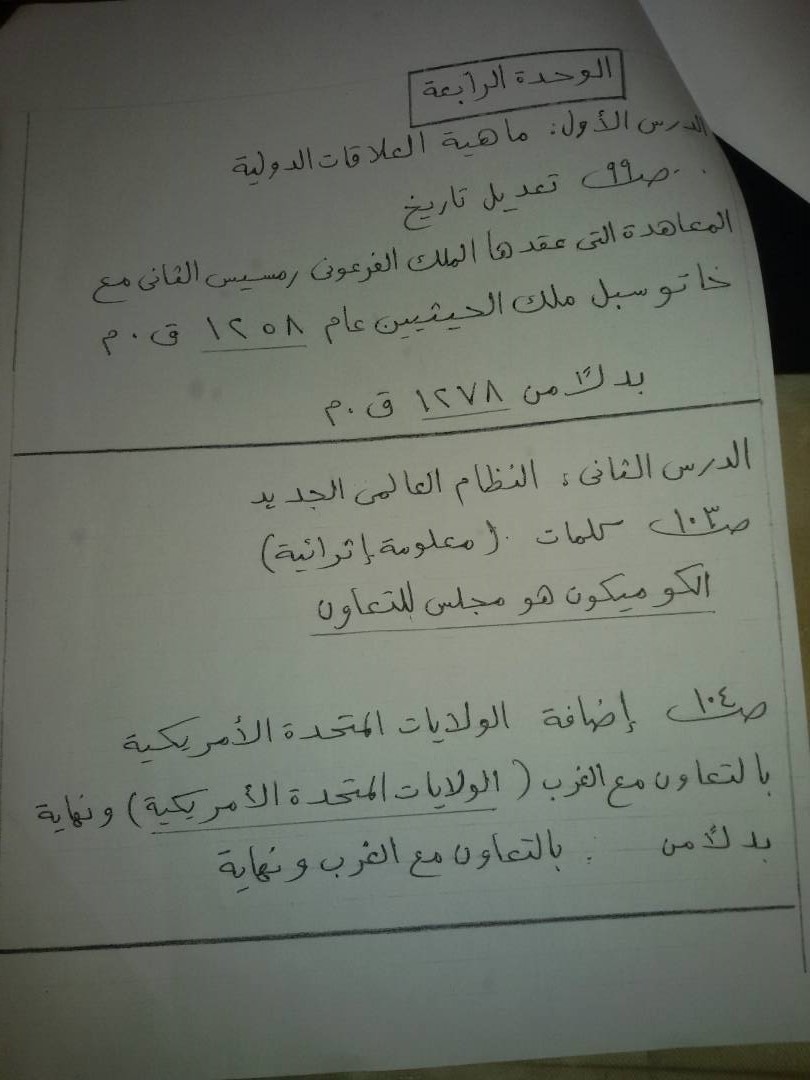 الوحدة الرابعة
الدرس الأول: ماهية العلاقات الدولية
ص٩٩ تعديل تاريخ
المعاهدة التى عقدها الملك الفرعونى رمسيس الثانى مع
خاتوسبل ملك الحيثيين عام ١٢٥٨ ق.م
بدلًا من ١٢٧٨ ق.م
الدرس الثانى: النظام العالمى الجديد
ص١٠٣ كلمات (معلومة إثرائية)
الكوميكون هو مجلس للتعاون
ص١٠٤ إضافة الولايات المتحدة الأمريكية
بالتعاون مع الغرب (الولايات المتحدة الأمريكية) ونهاية
بدلًا من : بالتعاون مع الغرب ونهاية